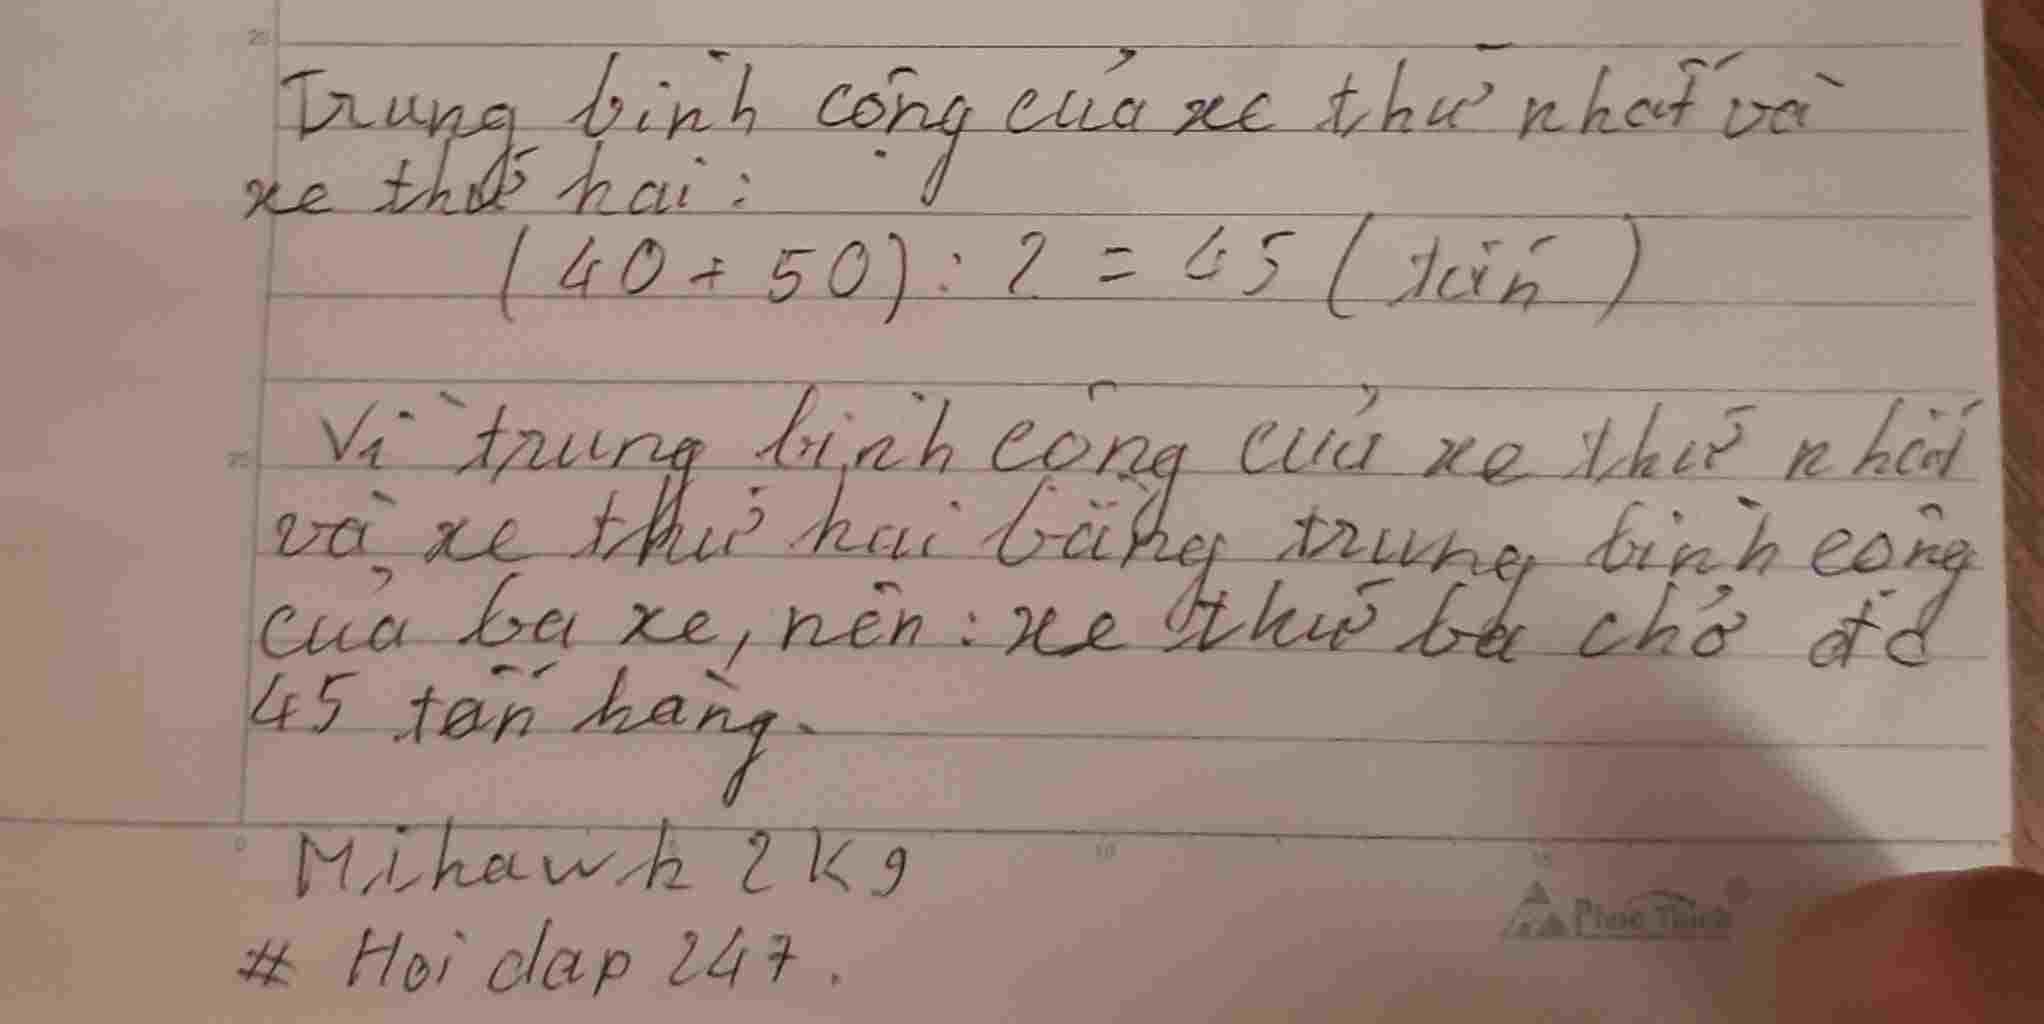 Trung bình cộng của xe thứ nhất và
xe thứ hai:
(40 + 50) : 2 = 45 (tấn)
Vì trung bình cộng của xe thứ nhất
và xe thứ hai bằng trung bình cộng
của ba xe, nên: xe thứ ba chở đc
45 tấn hàng.
Mihawk 2K9
# Hoi dap 247.